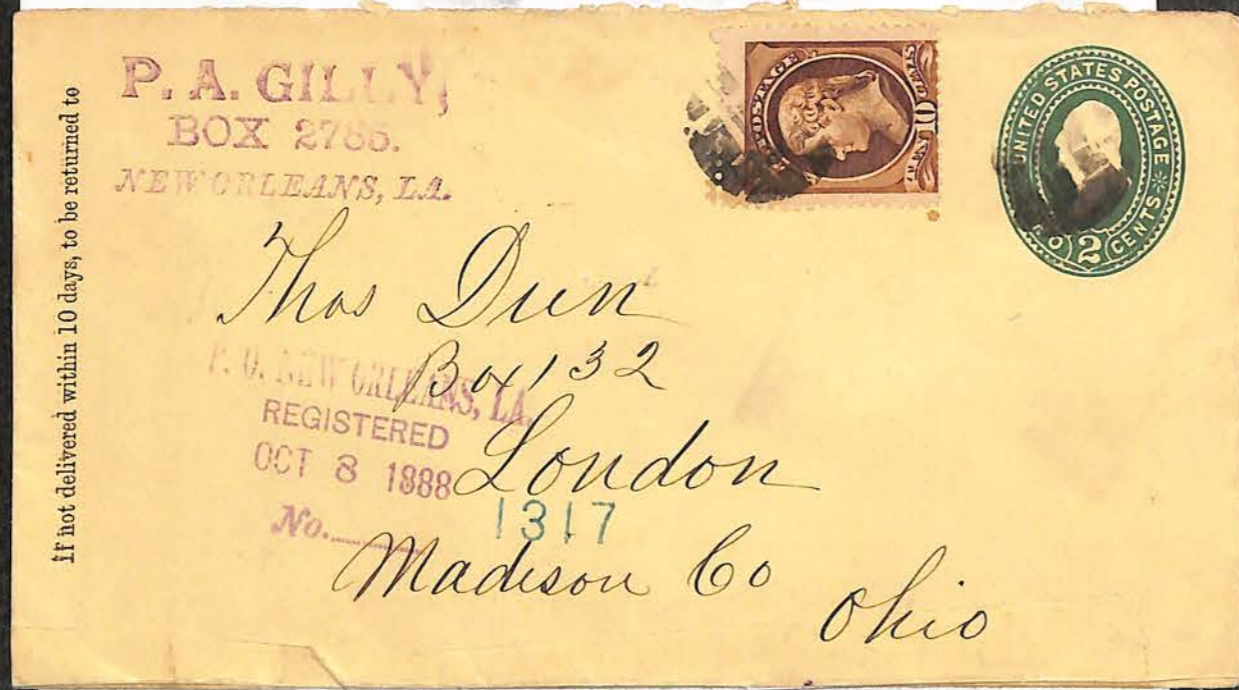 If not delivered within 10 days, to be returned to
P. A. GILLY,
BOX 2785.
NEW ORLEANS, LA.
POSTAGE
10
CENTS
UNITED STATES POSTAGE
2 CENTS
Thos Dun
Box 132
London
Madison Co
Ohio
P. O. NEW ORLEANS, LA.
REGISTERED
OCT 8 1888
No.
1317